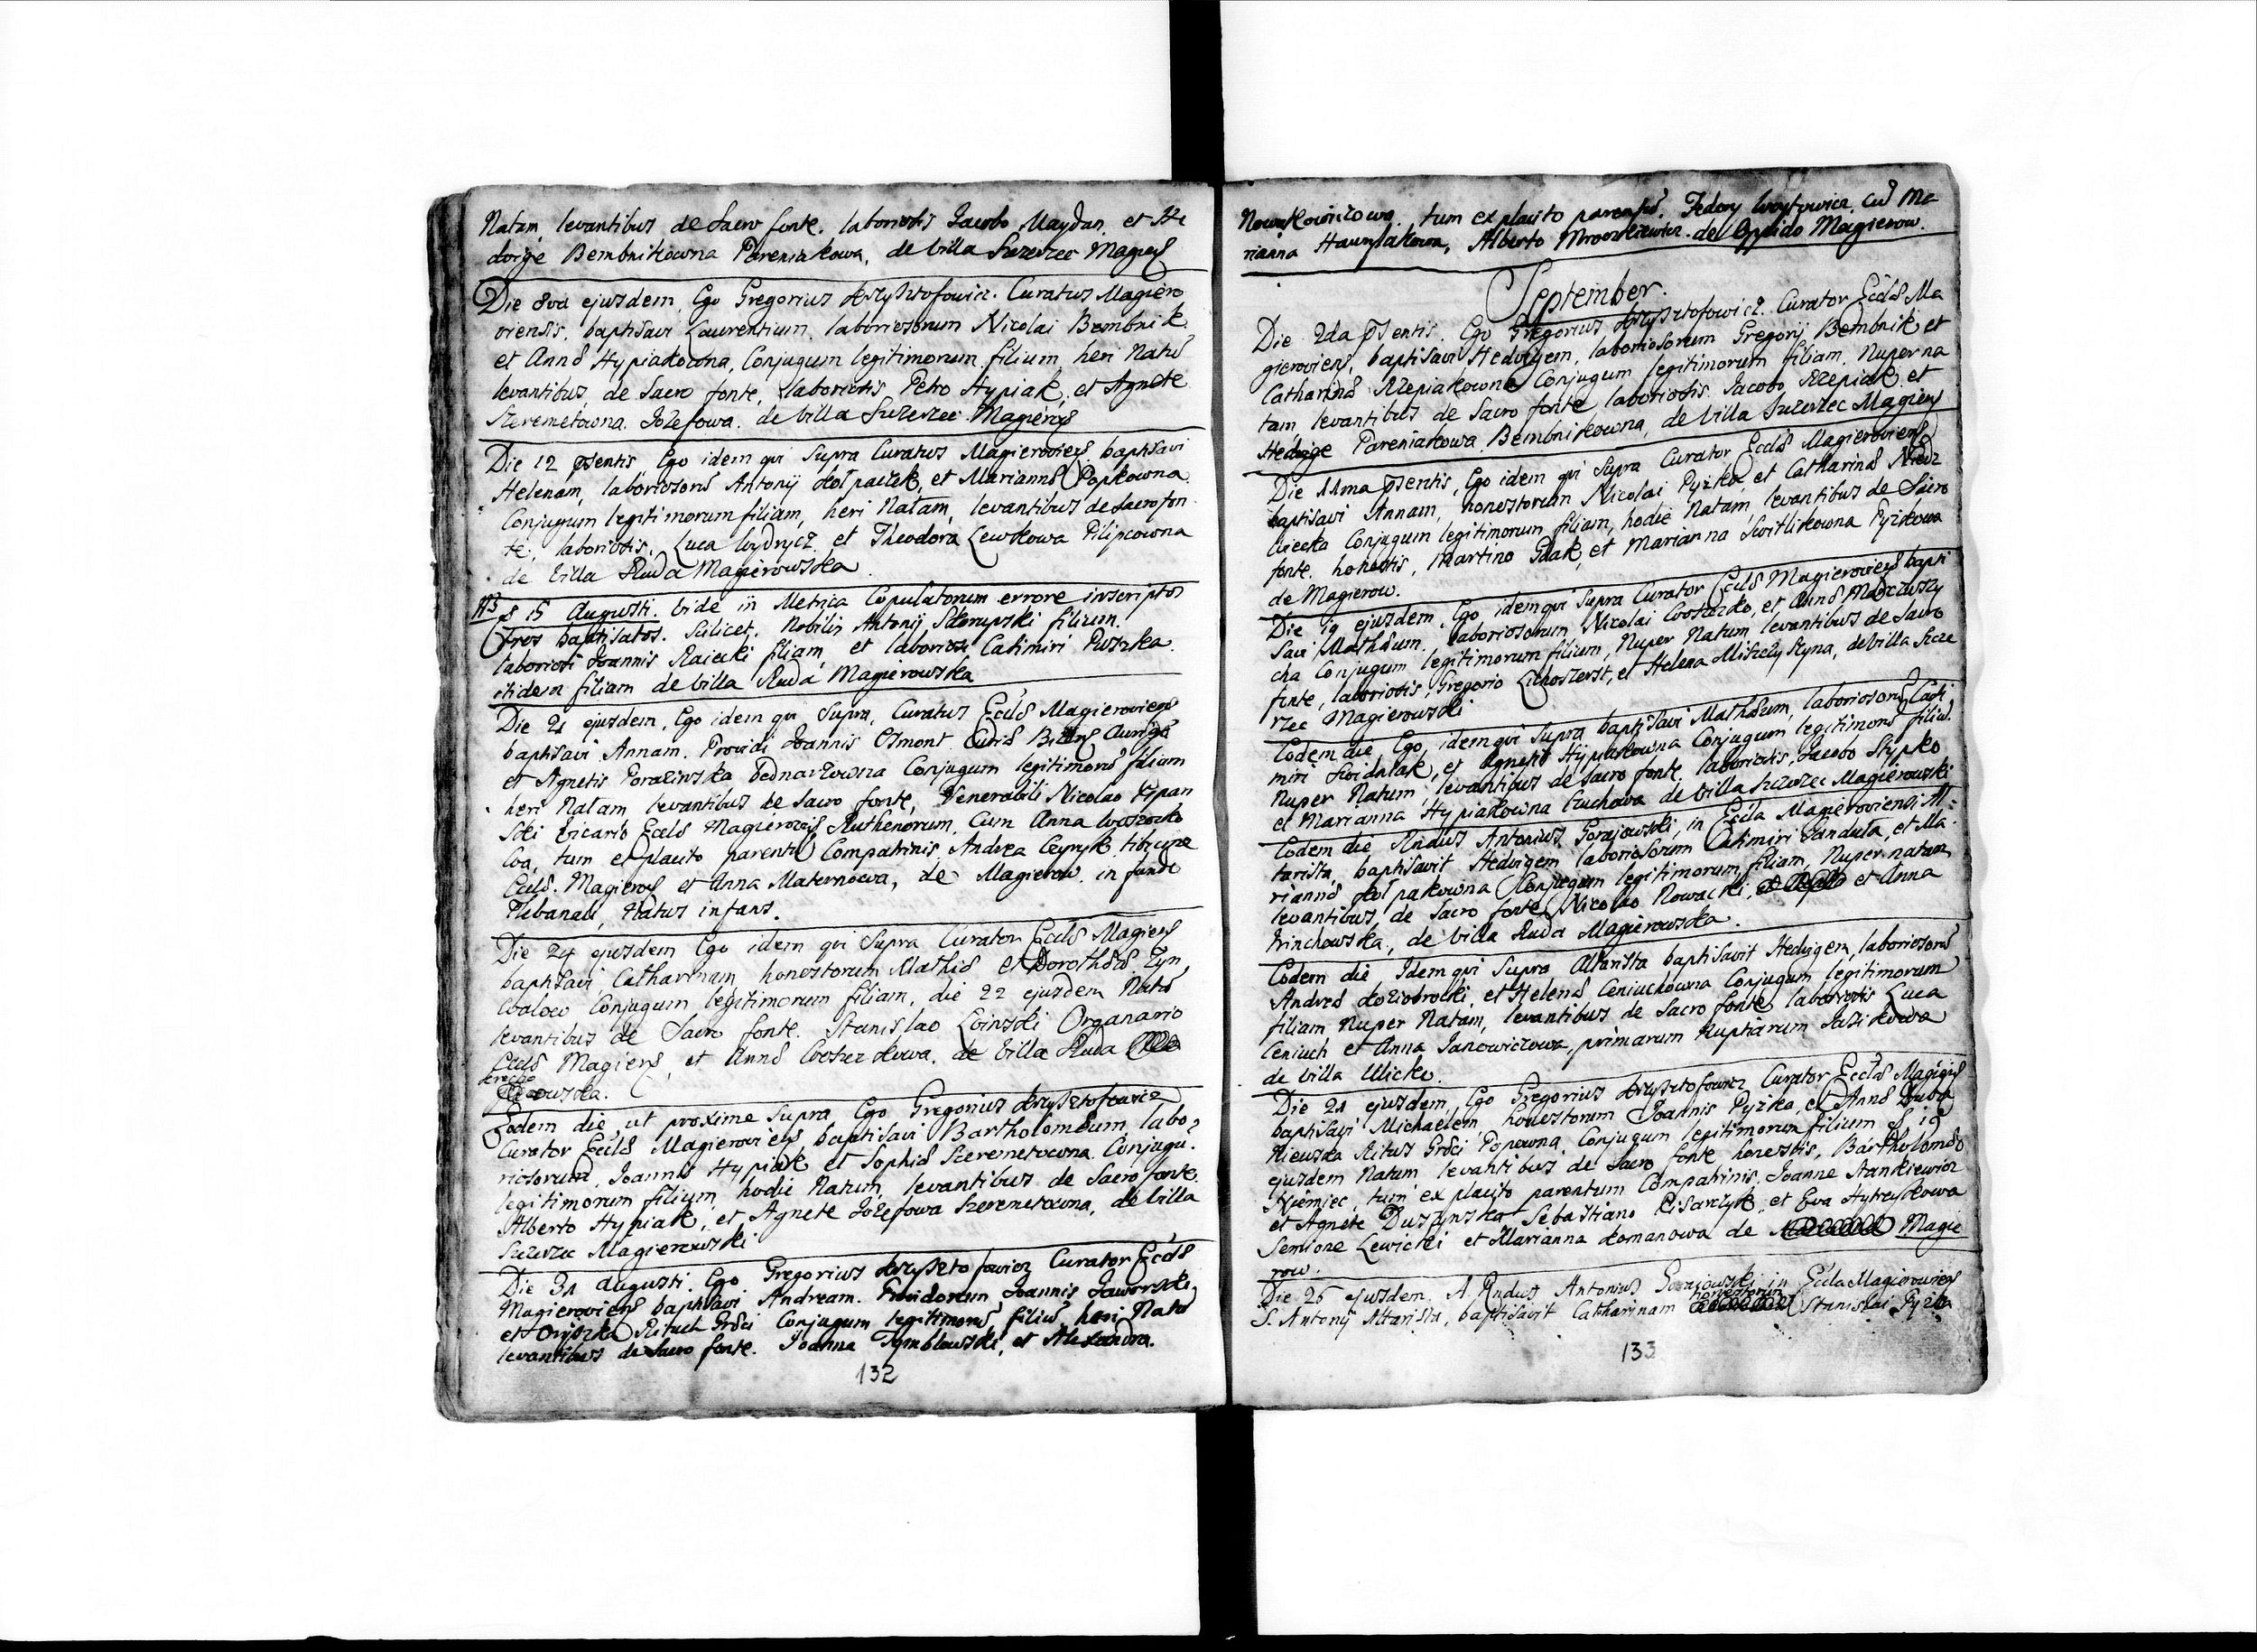 Natam levantibus de Sacro fonte. laboriosis Jacobo Maydan. et He
dvige Bembnikowna Pareniakowa, de Villa Szczerzec Magiers
Die 8va ejusdem, Ego Gregorius Krzysztofowicz. Curatus Magiero
viensis. baptisavi Laurentium. laboriosorum Nicolai Bembnik.
et Annæ Hypiakowna, Conjugum legitimorum filium heri Natū
levantibus de Sacro fonte, laboriosis Petro Hypiak, et Agnete
Szeremetowna Jozefowa. de Villa Szczerzec Magierovs
Die 12 psentis Ego idem qui Supra Curatus Magieroviens. baptisavi
Helenam, laboriosorū Antonij Kołpaczek, et Mariannæ Popkowna
Conjugum legitimorum filiam, heri Natam, levantibus de Sacro fon
te, laboriosis, Luca Wydrycz et Theodora Lewkowa Pilipcowna
de Villa Ruda Magierowska.
NB 15 Augusti. Vide in Metrica Copulatorum errore inscriptos
tres baptisatos. Scilicet. Nobilis Antonij Skorupski filium.
laboriosi Joannis Raiecki filiam et laboriosi Casimiri Puszka.
itidem filiam de Villa Ruda Magierowska
Die 21 ejusdem, Ego idem qui Supra, Curatus Ecclæ Magieroviens
baptisavi Annam. Providi Joannis Osmont Aurigæ
et Agnetis Goralinska Bednarzowna Conjugum legitimorū filiam
heri Natam levantibus de Sacro fonte, Venerabili Nicolao
ski Vicario Ecclæ Magierovis Ruthenorum, Cum Anna
wa, tum ex placito parentū Compatrinis Andrea tibicine
Ecclæ. Magierovs et Anna Maternowa, de Magierow. in fundo
Plebanali, Natus infans.
Die 24 ejusdem Ego idem qui Supra Curator Ecclæ Magiers
baptisavi Catharinam, honestorum Mathiæ et Dorotheæ Zyn
walow Conjugum legitimorum filiam, die 22 ejusdem Natā
levantibus de Sacro fonte. Stanislao Loinski Organario
Ecclæ Magiers, et Annæ de Villa Ruda
rowska.
Eodem die, ut proxime Supra Ego Gregorius Krzysztofowicz
Curator Ecclæ Magieroviens, baptisavi Bartholomeum, labo
riosorum, Joannis Hypiak et Sophiæ Szeremetowna. Conjugū.
legitimorum filium, hodie Natum, levantibus de Sacro fonte.
Alberto Hypiak, et Agnete Jozefowa Szeremetowna, de Villa
Szczerzec Magierowski
Die 31 Augusti. Ego Gregorius Krzysztofowicz Curator Ecclæ
Magieroviens baptisavi Andream. Providorum Joannis Jaworski
et Oryszka Ritus Græci Conjugum legitimorū, filiū, heri Natū
levantibus de Sacro fonte. Joanne Tymblowski, et Alexandra.
132
tum ex placito parentū. Fedory Woytowicz. Cū Ma
rianna Alberto de Oppido Magierow.
September.
Die 2da psentis. Ego Gregorius Krzysztofowicz. Curator Ecclæ Ma
gieroviens, baptisavi Hedvigem, laboriosorum Gregorij Bembnik et
Catharinæ Rzepiakowna Conjugum legitimorum filiam. Nuper na
tam, levantibus de Sacro fonte, laboriosis Jacobo Rzepiak et
Hedvige Pareniakowa Bembnikowna, de Villa Szczerzec Magiers
Die 11ma psentis, Ego idem qui Supra Curator Ecclæ Magieroviens
baptisavi Annam, honestorum Nicolai Pyzka, et Catharinæ Niedz
wiecka Conjugum legitimorum filiam, hodie Natam, levantibus de Sacro
fonte. honestis, Martino Gdak, et Marianna Switlikowna Pyzkowa
de Magierow.
Die 19 ejusdem, Ego, idem qui Supra Curator Ecclæ Magieroviens bapti
savi Mathæum. laboriosorum Nicolai et Annæ
cha Conjugum legitimorum filium, Nuper Natum levantibus de Sacro
fonte, laboriosis, Gregorio et Helena de Villa Szcze
rzec Magierowski
Eodem die, Ego, idem qui Supra baptisavi Mathæum, laboriosorū Casi
miri Swidniak, et Agnetis Hypiakowna Conjugum legitimorū filiū.
Nuper Natum, levantibus de Sacro fonte. laboriosis, Jacobo Stypko
et Marianna Hypiakowna de Villa Szczerzec Magierowski
Eodem die Rndus Antonius Gorajowski, in Eccla Magieroviensi Al-
tarista, baptisavit Hedvigem laboriosorum Casimiri Panduła, et Ma
riannæ Kołpakowna Conjugum legitimorum, filiam, Nuper natam
levantibus, de Sacro fonte Nicolao Nowacki, et Anna
Hrinchowska, de Villa Ruda Magierowska.
Eodem die Idem qui Supra Altarista baptisavit Hedvigem, laboriosorū
Andreæ Koziobrocki, et Helenæ Ceniuchowna Conjugum legitimorum
filiam Nuper Natam, levantibus de Sacro fonte laboriosis Luca
Ceniuch et Anna Janowiczowa, primarum Nuptiarum
de Villa Ulicko.
Die 21 ejusdem, Ego Gregorius Krzysztofowicz Curator Ecclæ Magiers
baptisavi Michaelem, honestorum Joannis Pyzka, et Annæ
niewska Ritus Græci Popowna. Conjugum legitimorum filium 19
ejusdem Natum levantibus de Sacro fonte honestis, Bartholomæo
Niemiec, tum ex placito parentum Compatrinis, Joanne Stankiewicz
et Agnete Duszynska, Sebastiano Pisarczyk, et Eva
Semione Lewicki et Marianna Komanowa de Magie
row.
Die 26 ejusdem. A. Rndus Antonius Gorajowski in Eccla Magieroviens
S. Antonij Altarista, baptisavit Catharinam honestorum Stanislai Pyzka
133